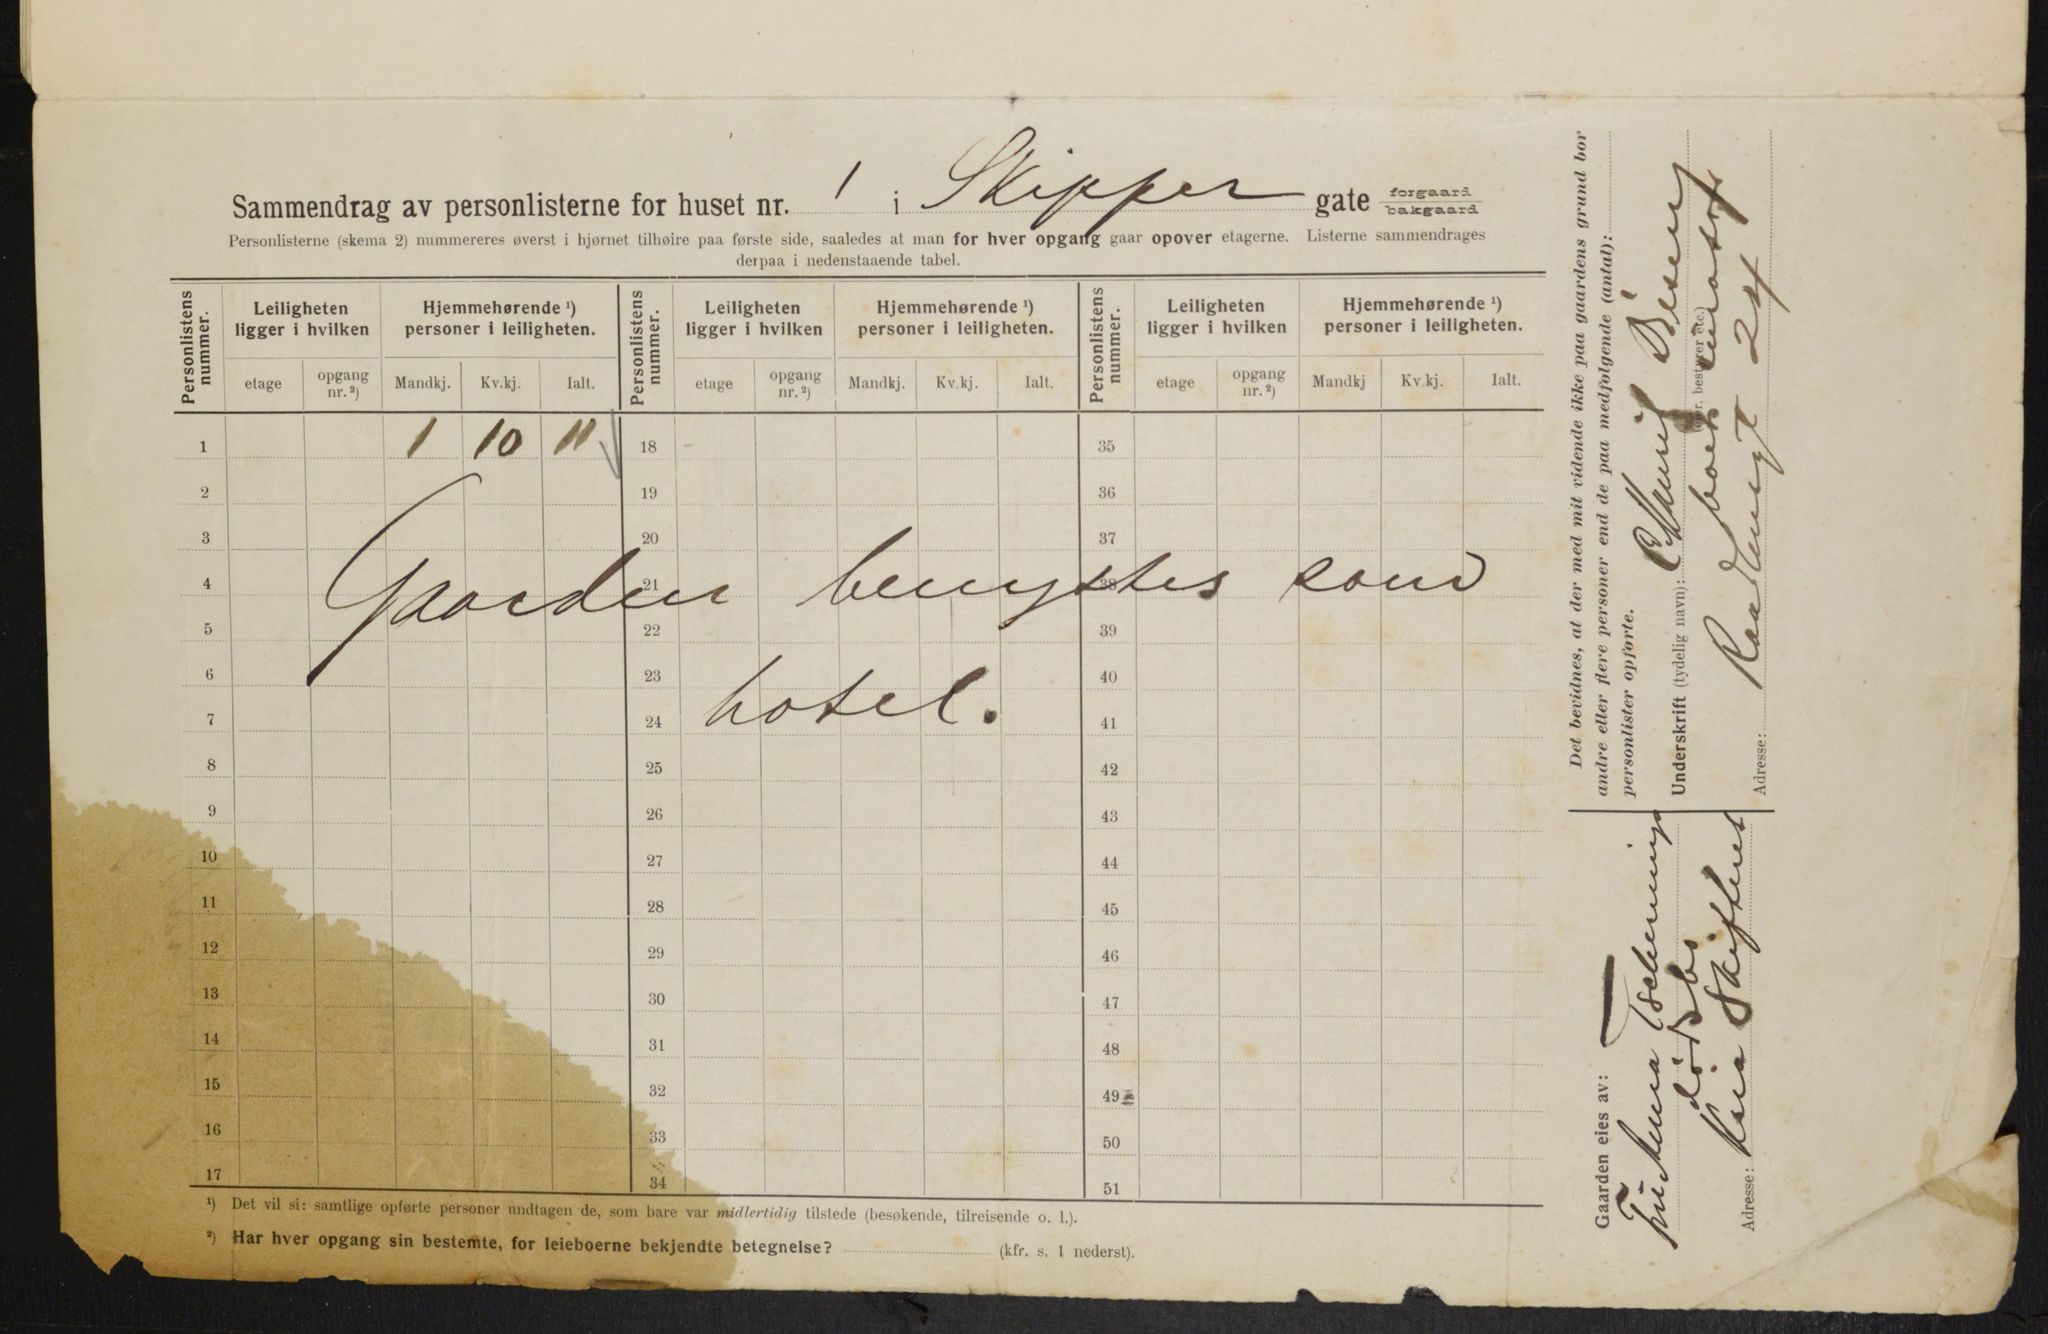 Sammendrag av personlisterne for huset nr. 1 i Skipper gate forgaard bakgaard
Personlisterne (skema 2) nummereres øverst i hjørnet tilhøire paa første side, saaledes at man for hver opgang gaar opover etagerne. Listerne sammendrages
derpaa i nedenstaaende tabel.
Personlistens nummer. Leiligheten ligger i hvilken Hjemmehørende ¹) personer i leiligheten. Personlistens nummer. Leiligheten ligger i hvilken Hjemmehørende ¹) personer i leiligheten. Personlistens nummer. Leiligheten ligger i hvilken Hjemmehørende ¹) personer i leiligheten.
etage opgang nr. ²) Mandkj. Kv.kj. Ialt. etage opgang nr. ²) Mandkj. Kv.kj. Ialt. etage opgang nr. ²) Mandkj Kv.kj. Ialt.
1 1 10 11 18 35
2 19 36
3 20 37
4 21 38
Gaarden benyttes som
5 22 39
6 23 40
hotel.
7 24 41
8 25 42
9 26 43
10 27 44
11 28 45
12 29 46
13 30 47
14 31 48
15 32 49
16 33 50
17 34 51
¹) Det vil si: samtlige opførte personer undtagen de, som bare var midlertidig tilstede (besøkende, tilreisende o. l.).
²) Har hver opgang sin bestemte, for leieboerne bekjendte betegnelse? (kfr. s. 1 nederst).
Det bevidnes, at der med mit vidende ikke paa gaardens grund bor
andre eller flere personer end de paa medfølgende (antal):
personlister opførte.
Underskrift (tydelig navn):
(eier, bestyrer etc.)
Adresse: 24
Gaarden eies av:
dødsbo
Adresse: Skifteret